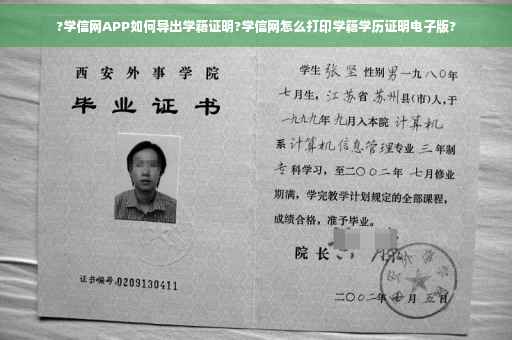 ?学信网APP如何导出学籍证明?学信网怎么打印学籍学历证明电子版?
西安外事学院
毕业证书
证书编号:0209130411
学生 张坚 性别 男 一九八〇年
七月生，江苏省 苏州县(市)人,于
一九九九年 九月入本院 计算机
系 计算机信息管理专业 三 年制
专 科学习，至二〇〇二年 七月修业
期满，学完教学计划规定的全部课程，
成绩合格，准予毕业。
院 长
二〇〇二年 月 五日